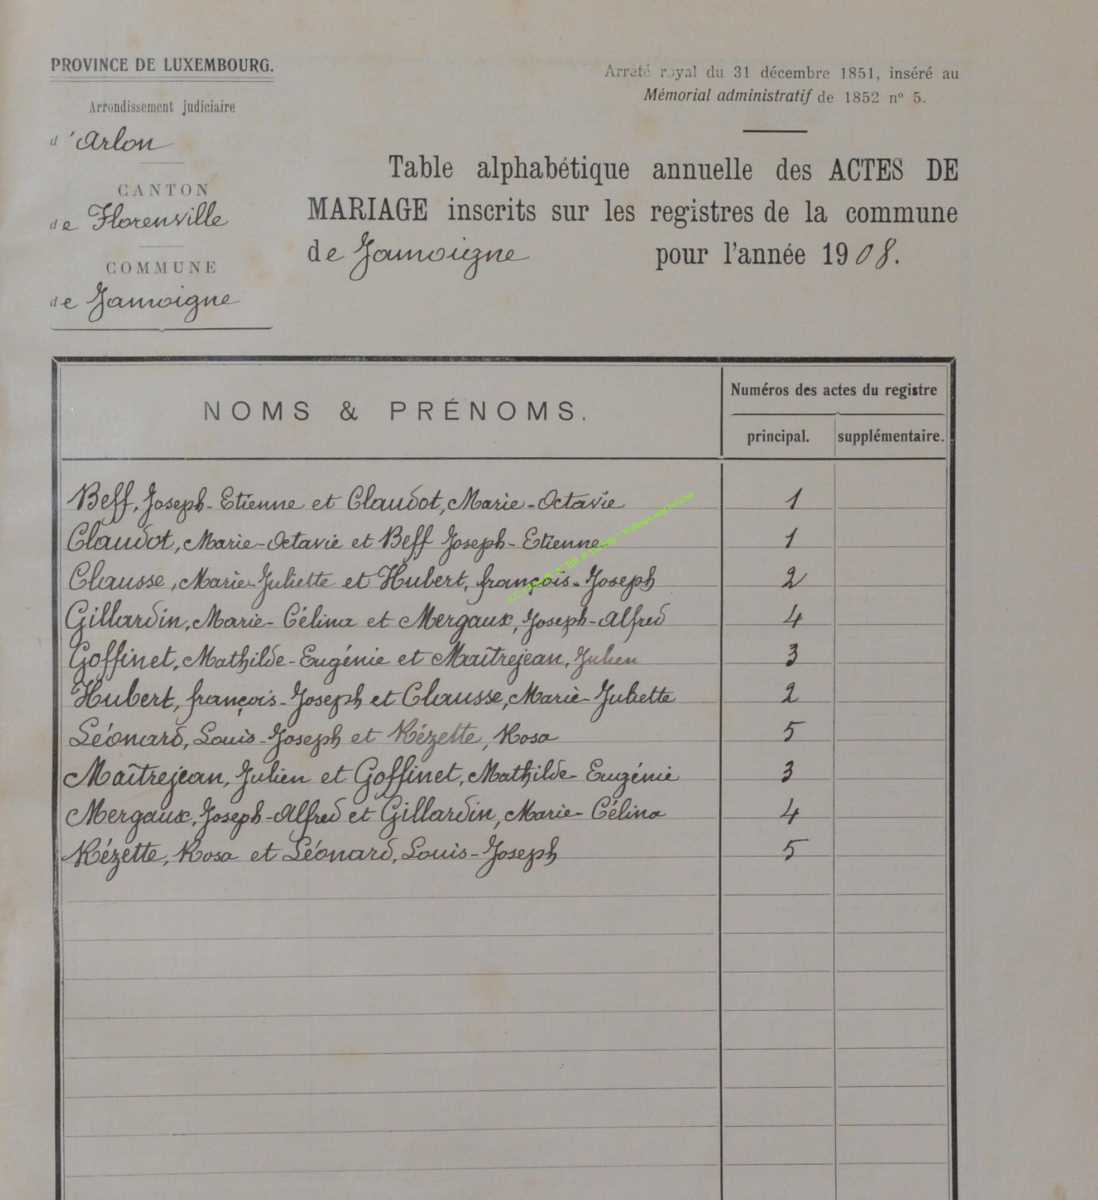 PROVINCE DE LUXEMBOURG.
Arrondissement judiciaire
d'Arlon
CANTON
de Florenville
COMMUNE
de Jamoigne
Arrêté royal du 31 décembre 1851, inséré au
Mémorial administratif de 1852 n° 5.
Table alphabétique annuelle des ACTES DE
MARIAGE inscrits sur les registres de la commune
de Jamoigne pour l'année 1908.
NOMS & PRÉNOMS.
Numéros des actes du registre
principal. supplémentaire.
Beff, Joseph-Etienne et Claudot, Marie-Octavie 1
Claudot, Marie-Octavie et Beff Joseph-Etienne 1
Clausse, Marie-Juliette et Hubert, françois-Joseph 2
Gillardin, Marie-Célina et Mergaux, Joseph-Alfred 4
Goffinet, Mathilde-Eugénie et Maîtrejean, Julien 3
Hubert, françois-Joseph et Clausse, Marie-Juliette 2
Léonard, Louis-Joseph et Rézette, Rosa 5
Maîtrejean, Julien et Goffinet, Mathilde-Eugénie 3
Mergaux, Joseph-Alfred et Gillardin, Marie-Célina 4
Rézette, Rosa et Léonard, Louis-Joseph 5